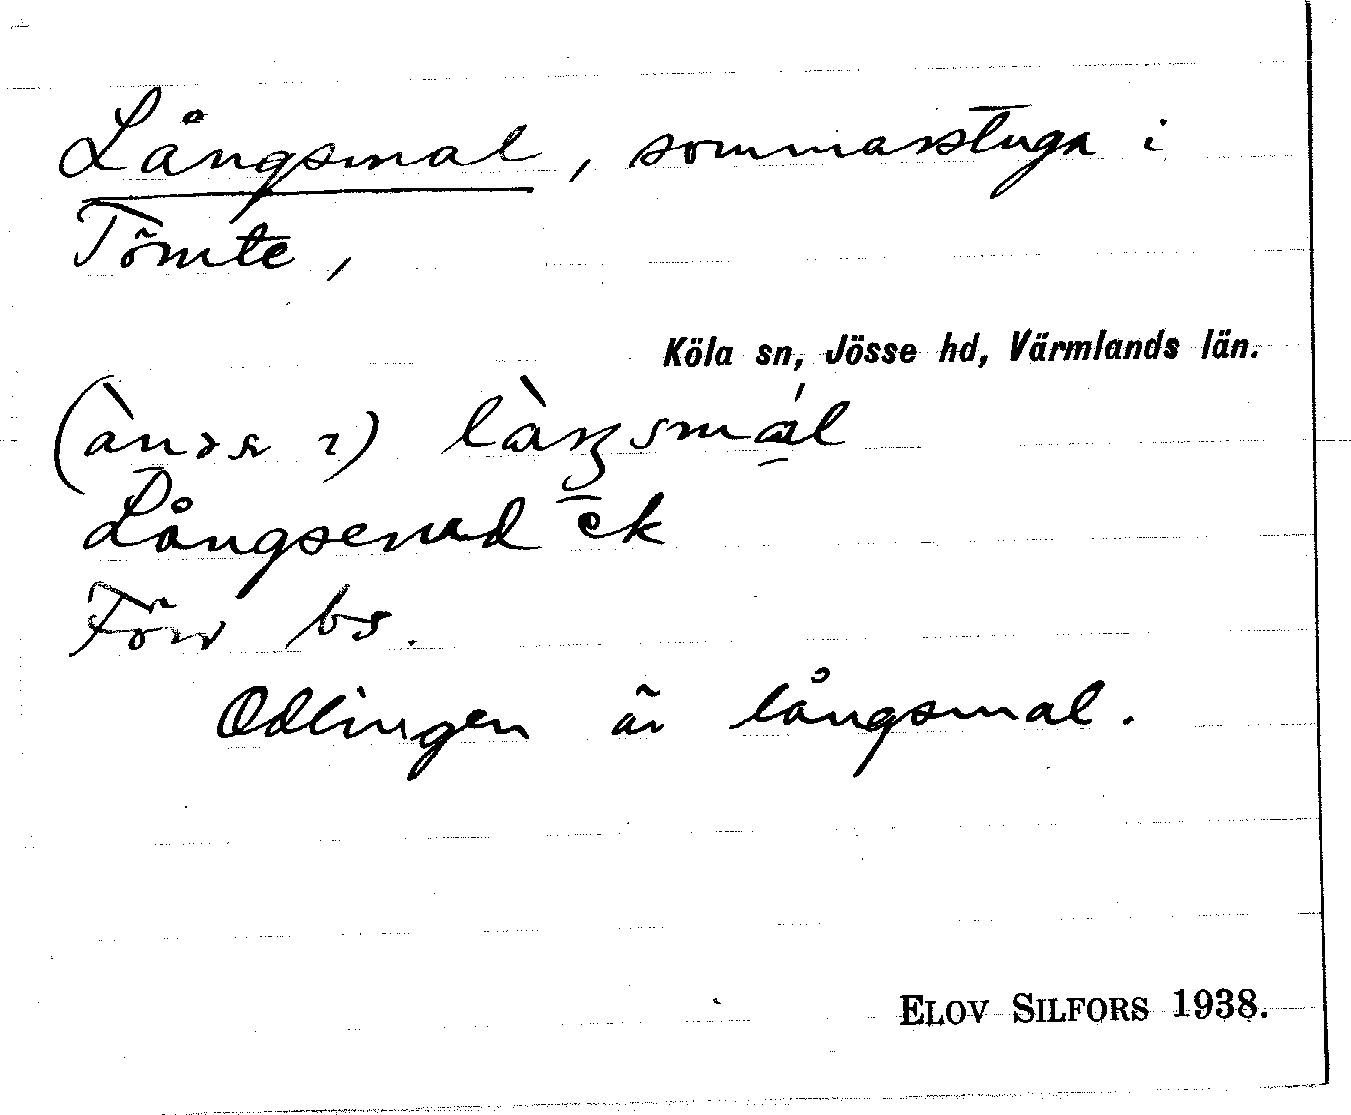 Långsmal, sommarstuga i
Tömte,
Köla sn, Jösse hd, Värmlands län.
làŋsmál
ek
bs.
Odlingen är långsmal.
ELOV SILFORS 1938.